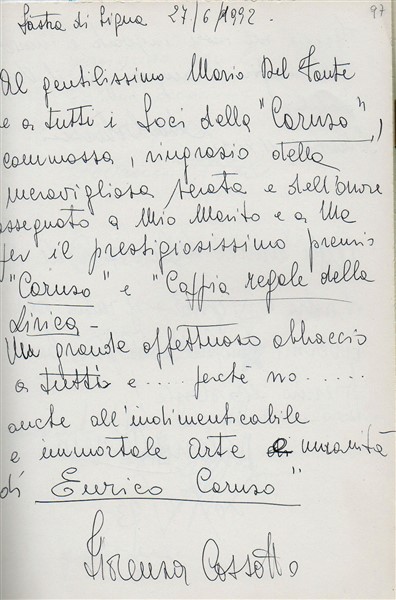 Lastra di Signa 27/6/1992.
97
Al gentilissimo Mario Del Fante
e a tutti i Soci della "Caruso",
commossa, ringrazio della
meravigliosa serata e dell'onore
assegnato a Mio Marito e a Me
per il prestigiosissimo premio
"Caruso" e "Caffia regale della
Lirica -
Un grande affettuoso abbraccio
a tutti e .... perché no ......
anche all'indimenticabile
e immortale Arte e umanità
di Enrico Caruso"
Fiorenza Cossotto